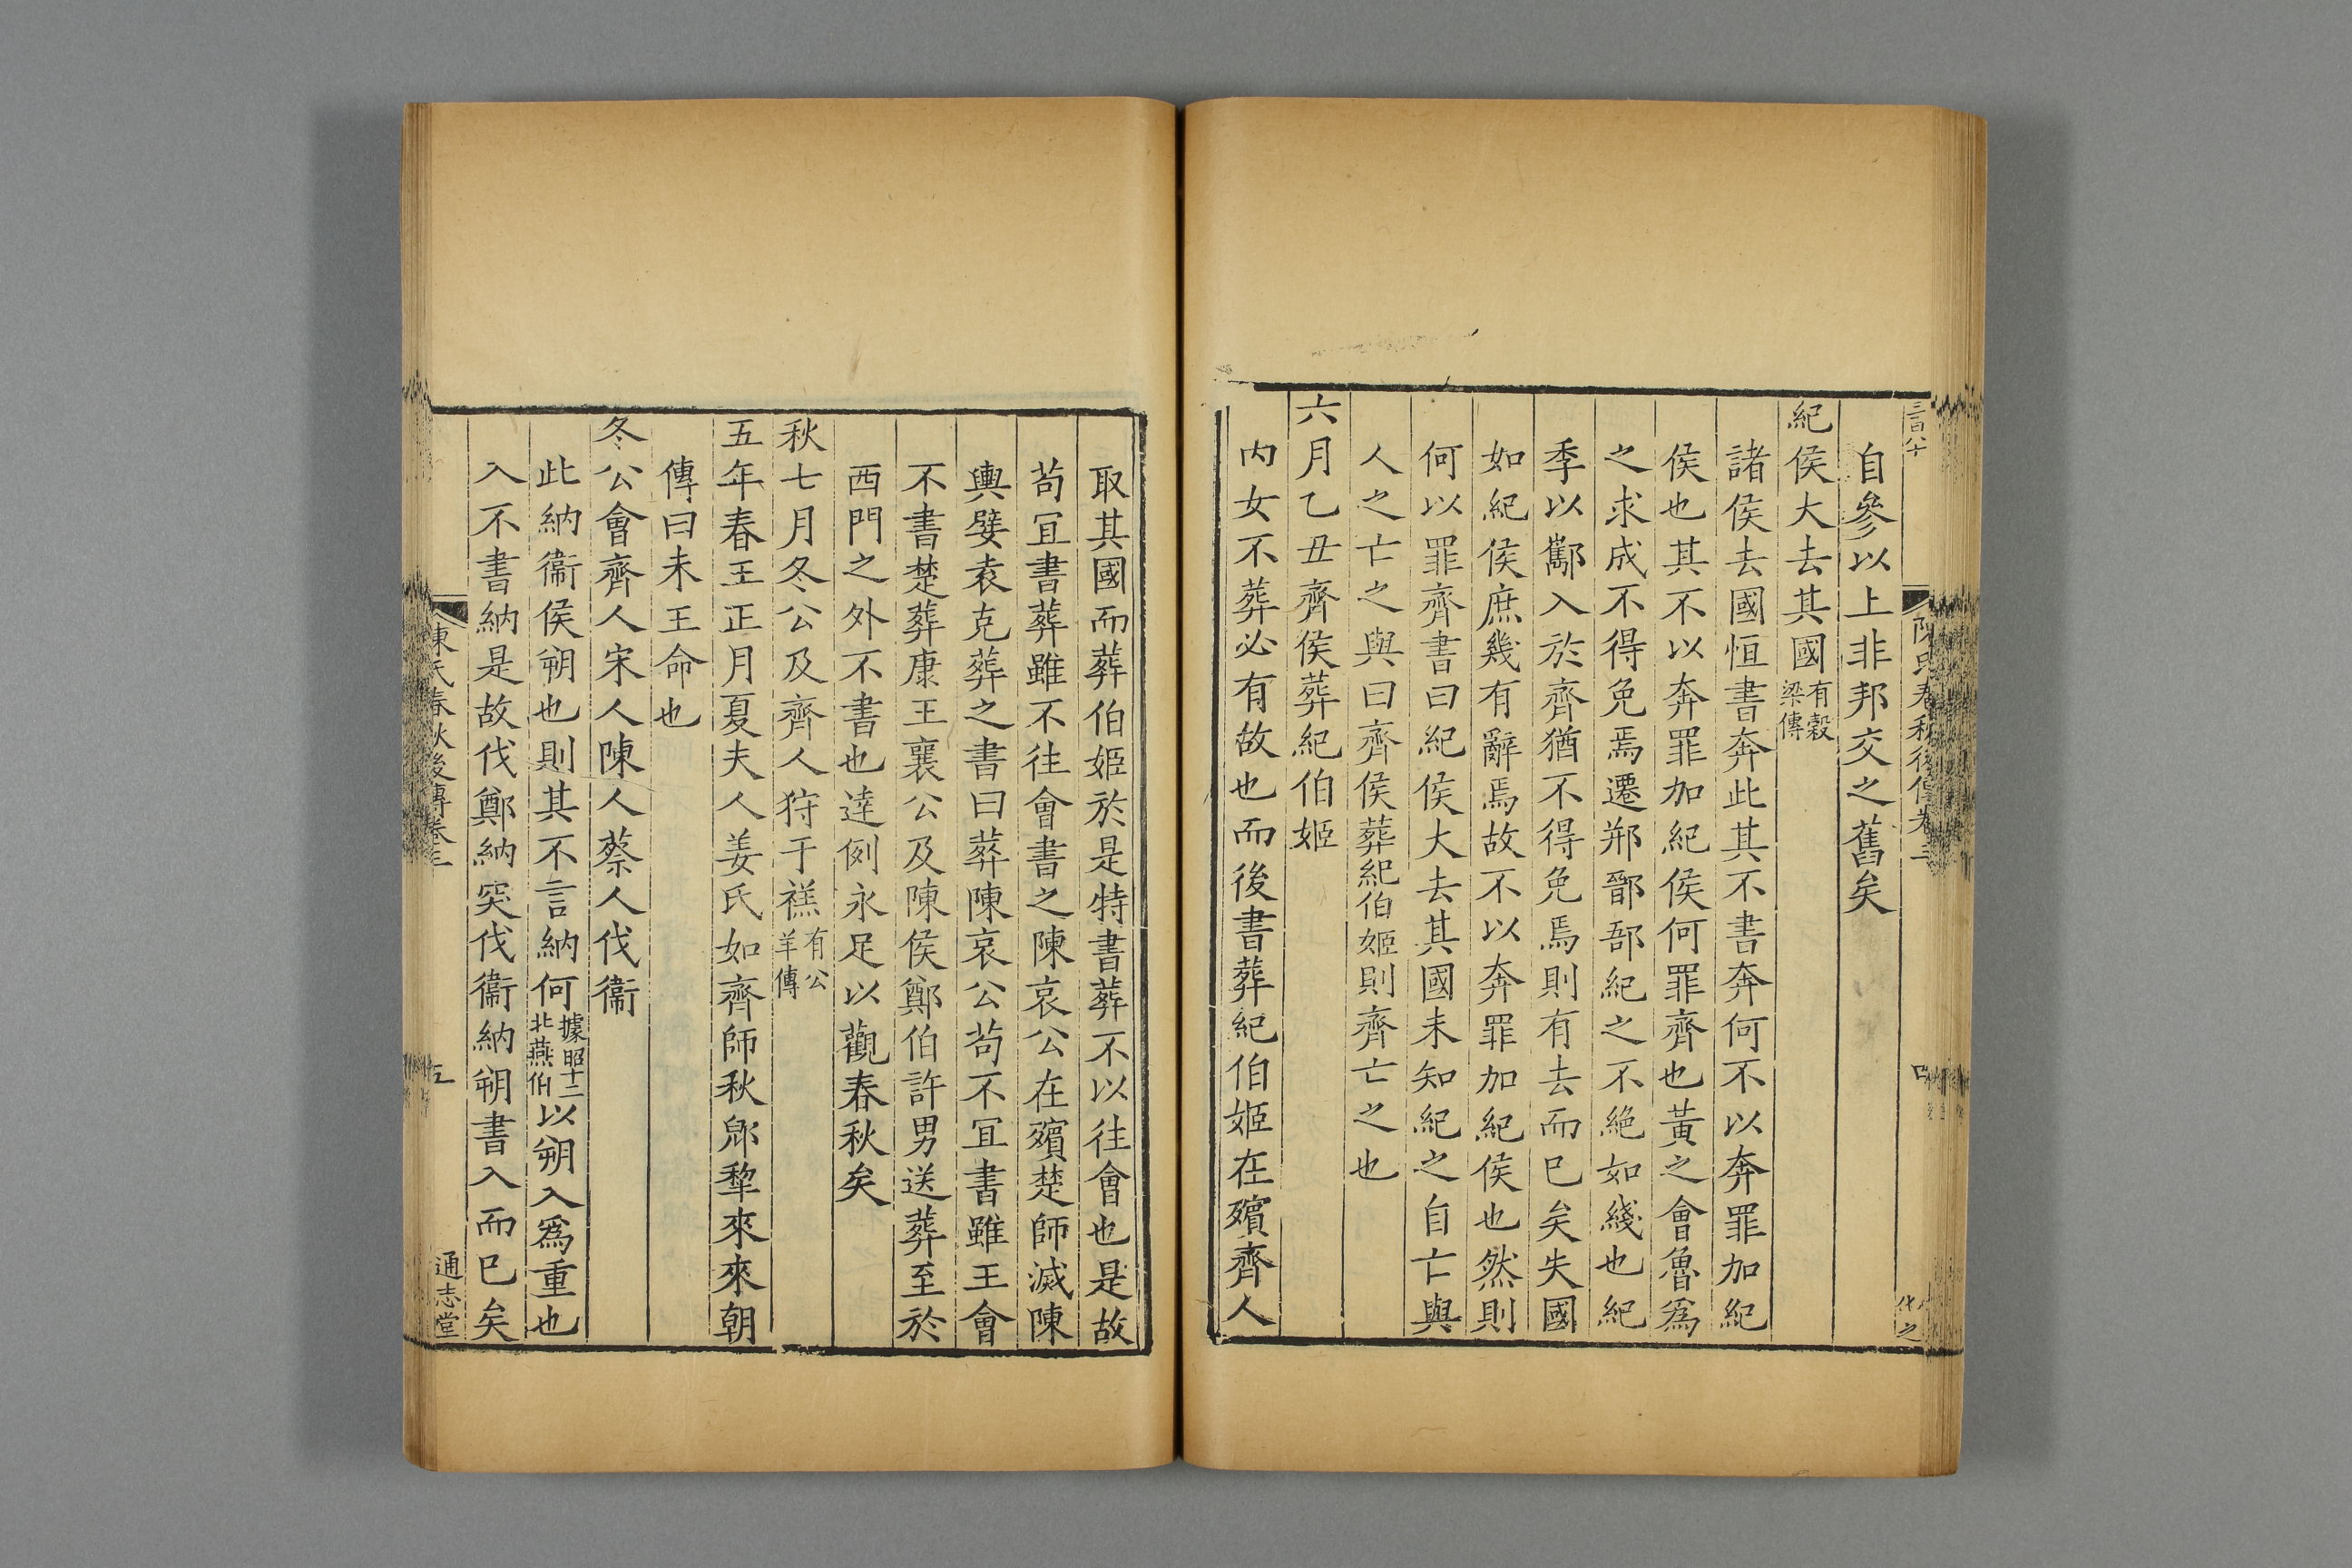 自參以上非邦交之舊矣
紀侯大去其國有穀梁傳
諸侯去國恒書奔此其不書奔何不以奔罪加紀
侯也其不以奔罪加紀侯何罪齊也黃之會魯爲
之求成不得免焉遷郱鄑郚紀之不絶如綫也紀
季以酅入於齊猶不得免焉則有去而已矣失國
如紀侯庶幾有辭焉故不以奔罪加紀侯也然則
何以罪齊書曰紀侯大去其國未知紀之自亡與
人之亡之與曰齊侯葬紀伯姬則齊亡之也
六月乙丑齊侯葬紀伯姬
内女不葬必有故也而後書葬紀伯姬在殯齊人
取其國而葬伯姬於是特書葬不以往會也是故
茍冝書葬雖不往會書之陳哀公在殯楚師滅陳
輿嬖袁克葬之書曰葬陳哀公茍不冝書雖王會
不書楚葬康王襄公及陳侯鄭伯許男送葬至於
西門之外不書也逹例永足以觀春秋矣
秋七月冬公及齊人狩于禚有公羊傳
五年春王正月夏夫人姜氏如齊師秋郳犂來來朝
傳曰未王命也
冬公會齊人宋人陳人蔡人伐衞
此納衞侯朔也則其不言納何據昭十二北燕伯以朔入爲重也
入不書納是故伐鄭納突伐衞納朔書入而已矣
陳氏春秋後傳卷三
五
通志堂